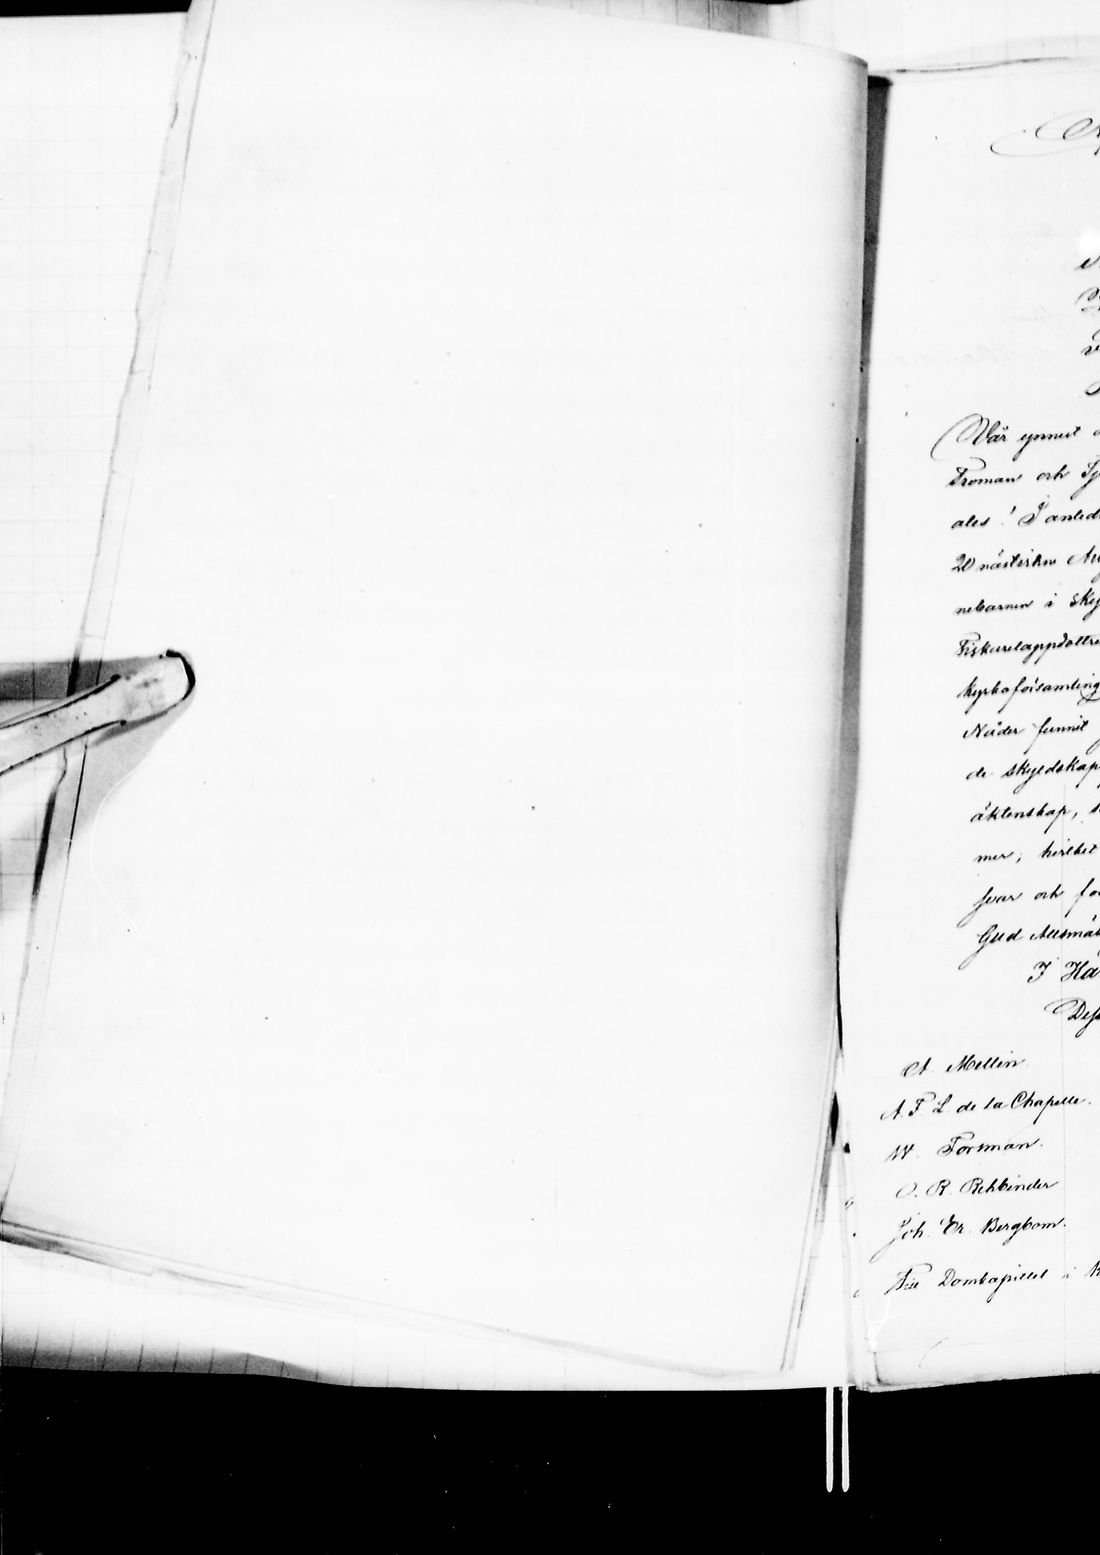 Vår ynnest
Troman och Tj
ales! I anled
20 nästirkne
nebarnen i sky
Fiskarelappdottre
kyrkoförsamling
Nåder funnit
de skyldskap
äktenskap,
mer; hvilket
svar och fö
Gud Allsmäk
I Ka
A. Mellin
A. F. L. de la Chapelle.
W. Forsman.
O. R. Rehbinder
Joh. Er. Bergbom.
Till Domkapitlet i K